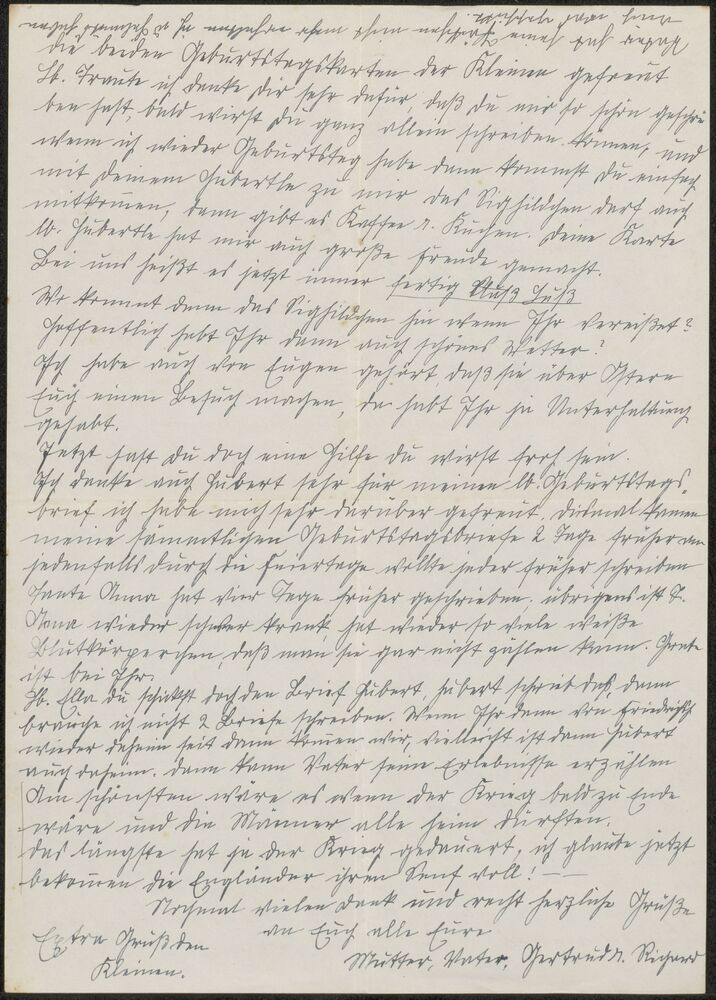 die beiden Geburtstagskarten der Kleinen gefreut
Lb. Traute ich danke Dir sehr dafür, daß Du mir so schön geschrie
ben hast, bald wirst Du ganz allein schreiben können, und
wenn ich wieder Geburtstag habe dann kommst Du einfach
mit Deinem Hubertle zu mir das Sighildchen darf auch
mitkommen, dann gibt es Kaffee u. Kuchen. Deine Karte
lb. Hubertle hat mir auch große Freude gemacht.
Bei uns heißt es jetzt immer fertig
Wo kommt denn das Sighildchen hin wenn Ihr vereißet?
Hoffentlich habt Ihr dann auch schönes Wetter?
Ich habe auch von Eugen gehört daß sie über Ostern
Euch einen Besuch machen, da habt Ihr ja Unterhaltung
gehabt.
Jetzt hast Du doch eine Hilfe Du wirst froh sein.
Ich danke auch Hubert sehr für meinen lb. Geburtstags-
brief ich habe mich sehr darüber gefreut, dismal kamen
meine sämmtlichen Geburtstagsbriefe 2 Tage früher an
jedenfalls durch die Feiertage wollte jeder früher schreiben
Tante Anna hat vier Tage früher geschrieben. übrigens ist T.
Anna wieder schwer krank hat wieder so viele weiße
Blutkörperchen, daß man sie gar nicht zählen kann.
ist bei Ihr.
Lb. Ella Du schickst doch den Brief Hubert, Hubert schreib das, dann
brauche ich nicht 2 Briefe schreiben. Wenn Ihr dann von
wieder daheim seit dann kommen wir, vielleicht ist dann Hubert
auch daheim. dann kann Vater seine Erlebnisse erzählen
Am schönsten wäre es wenn der Krieg bald zu Ende
wäre und die Männer alle heim dürften.
das längste hat ja der Krieg gedauert, ich glaube jetzt
bekommen die Engländer ihren Senf voll! —
Nochmal vielen Dank und recht herzliche Grüße
an Euch alle Eure
Mutter, Vater, Gertrud u. Richard
Extra Gruß den
Kleinen.